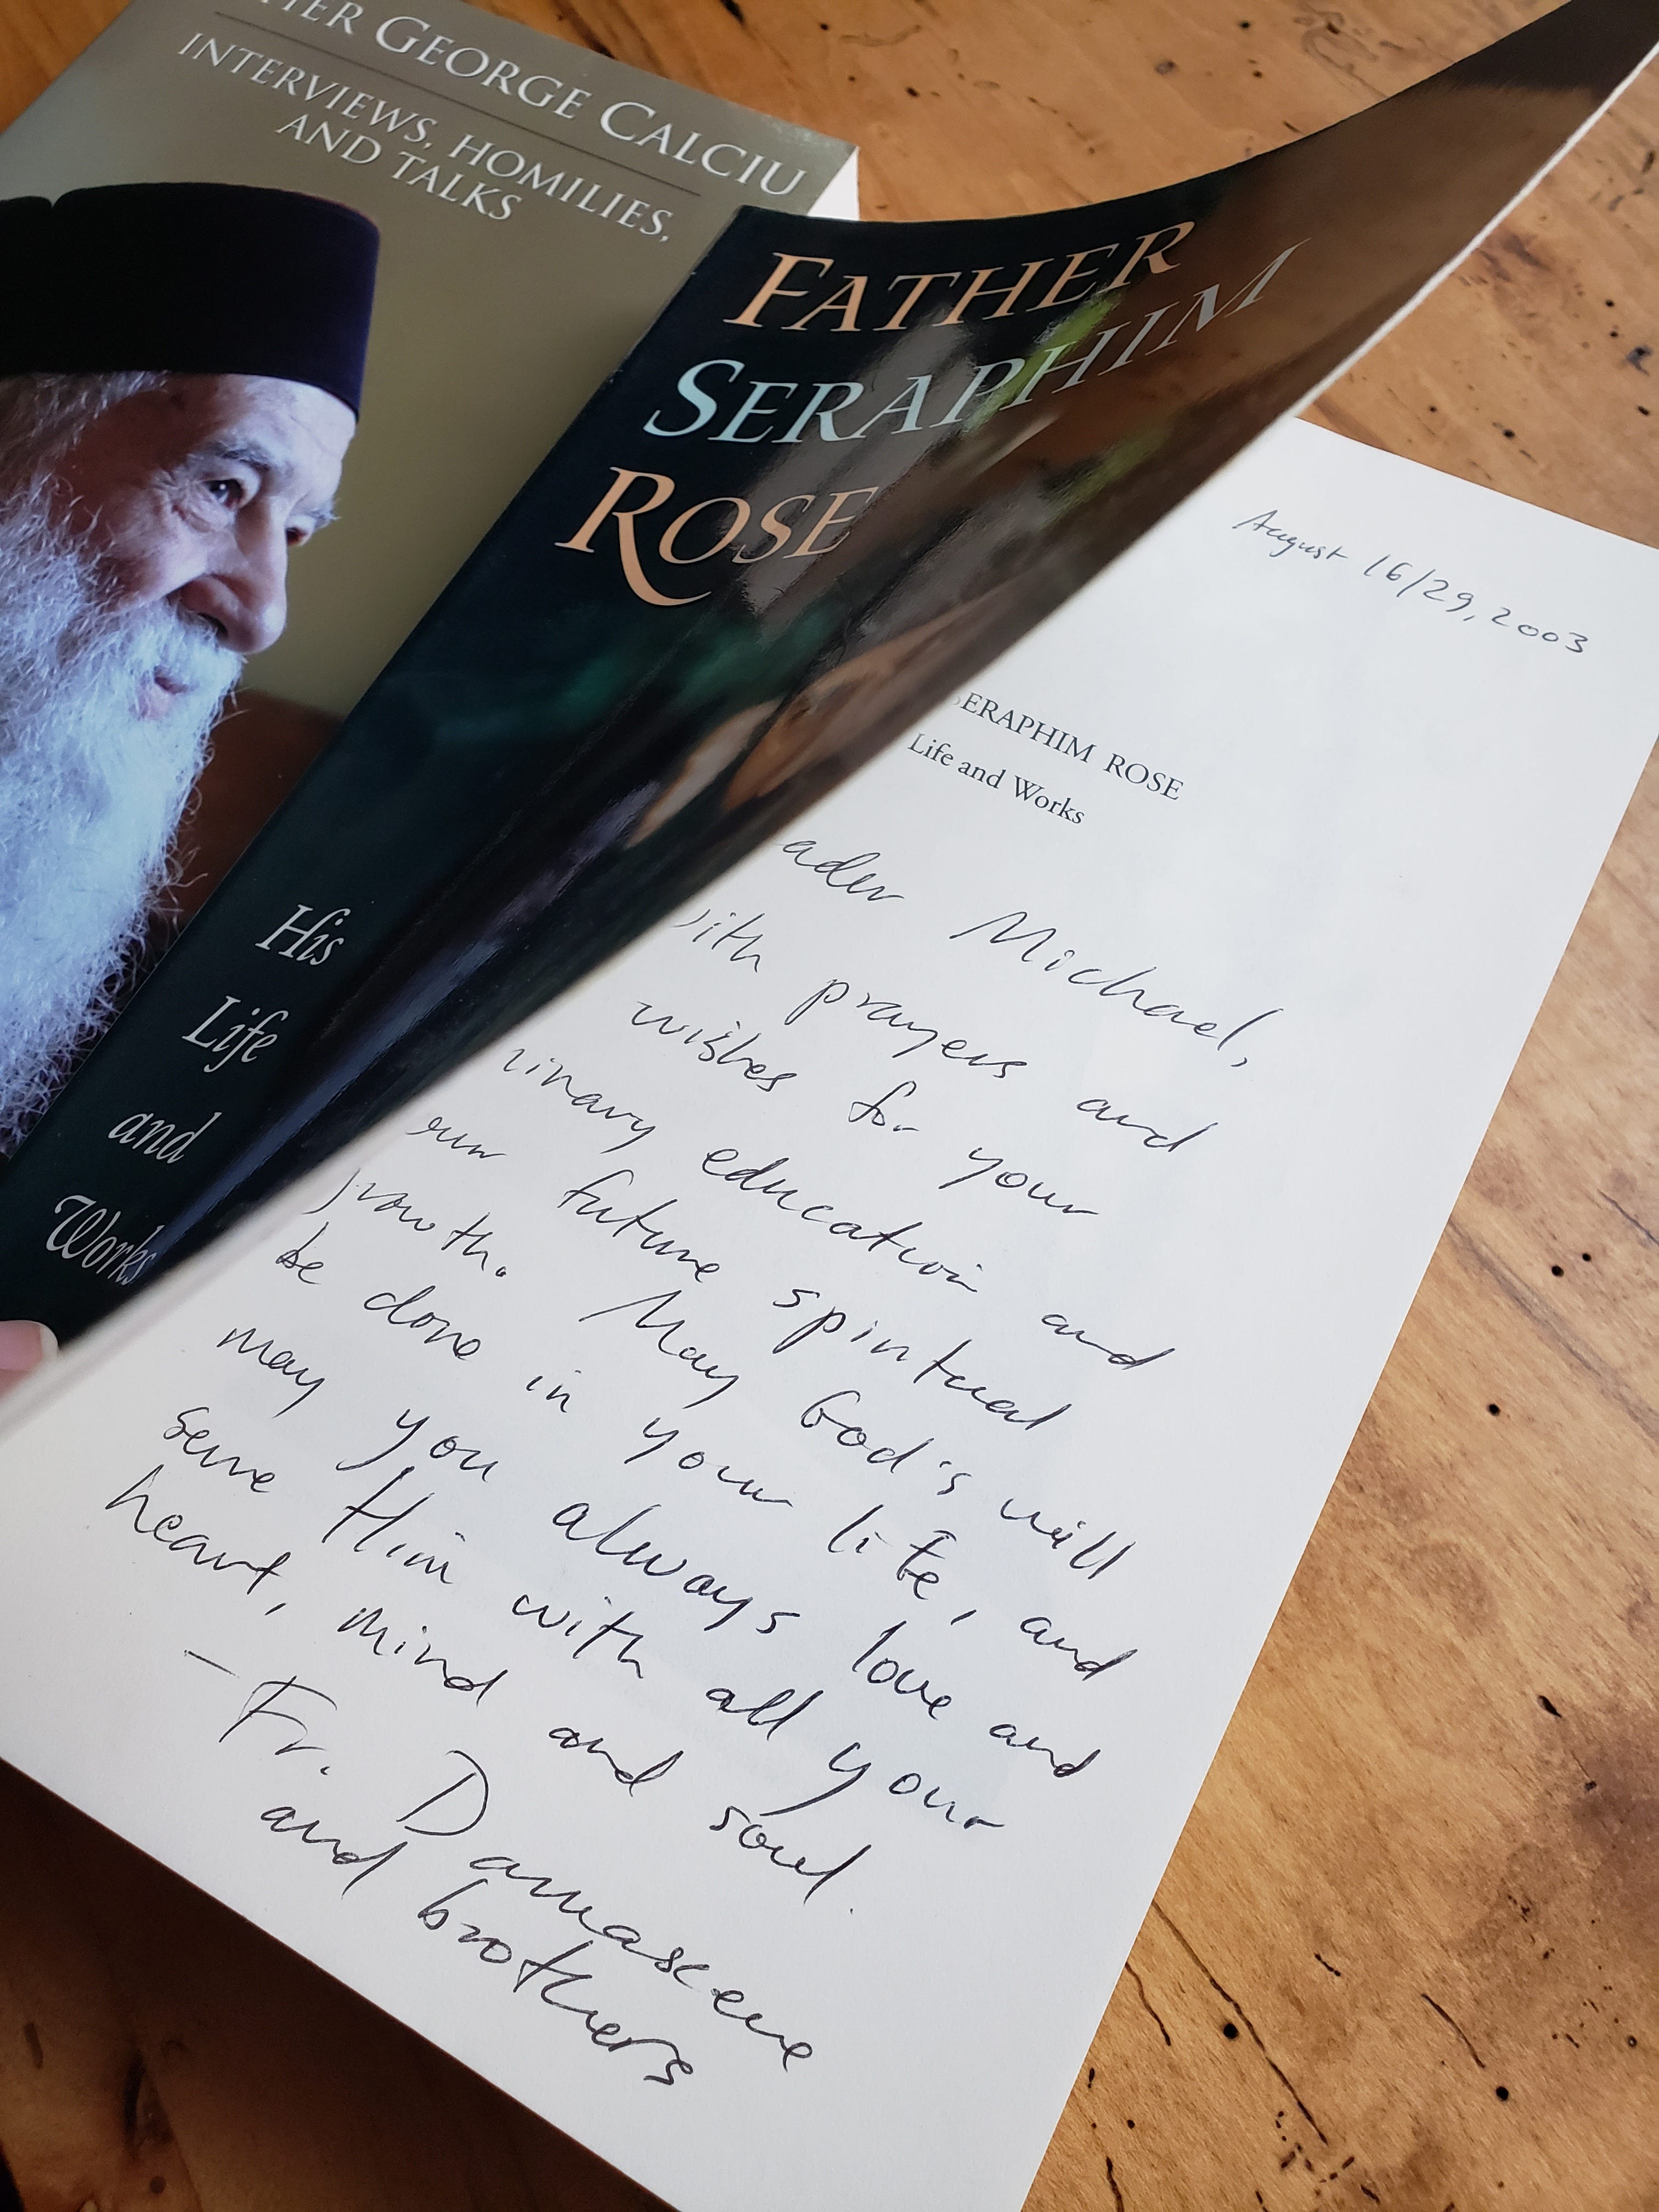 GEORGE CALCIU
INTERVIEWS, HOMILIES,
AND TALKS
FATHER
SERAPHIM
ROSE
His
Life
and
Works
August 16/29, 2003
SERAPHIM ROSE
Life and Works
Michael,
with prayers and
wishes for your
education and
future spiritual
growth. May God's will
be done in your life, and
may you always love and
serve Him with all your
heart, mind and soul.
— Fr. Damascene
and brothers